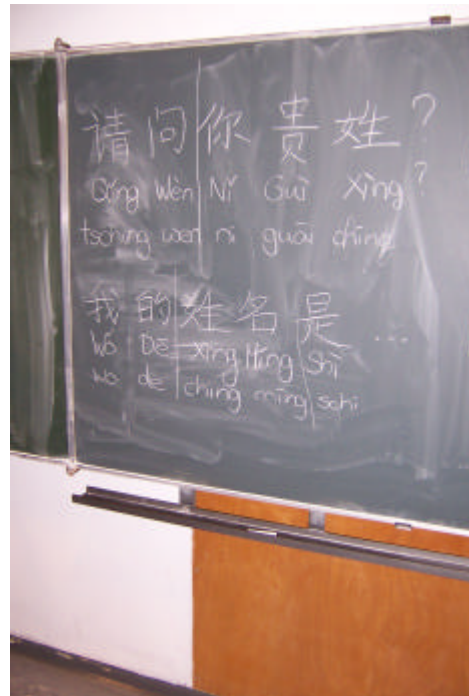 请问你贵姓?
Qǐng Wèn Nǐ Guì Xìng?
tsching wen ni guai ching
我的姓名是...
Wǒ De Xìng Míng Shì
wo de ching ming schi